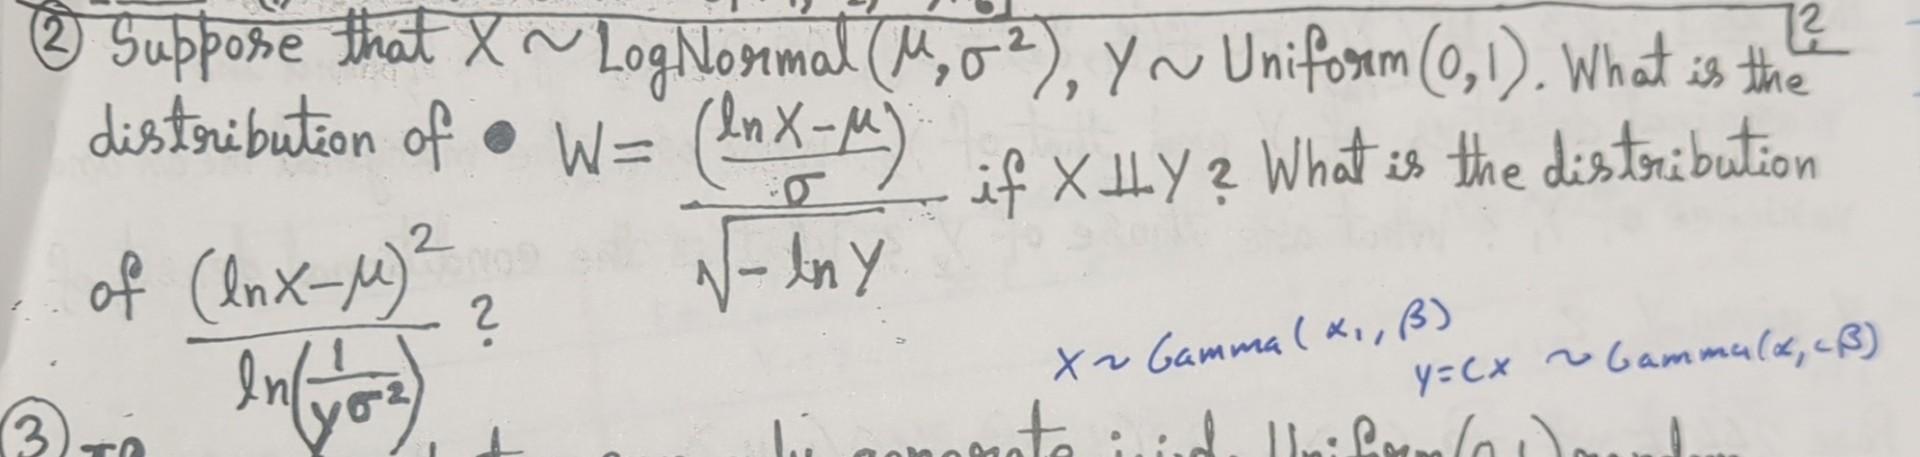 ② Suppose that X ~ LogNormal(μ, σ²), Y ~ Uniform(0,1). What is the
distribution of W = ((ln X - μ)/σ) / √(-ln Y) if X ⫫ Y? What is the distribution
of (ln X - μ)² / ln(1/(Yσ²)) ?
X ~ Gamma(α₁, β)
Y = CX ~ Gamma(α, cβ)
③